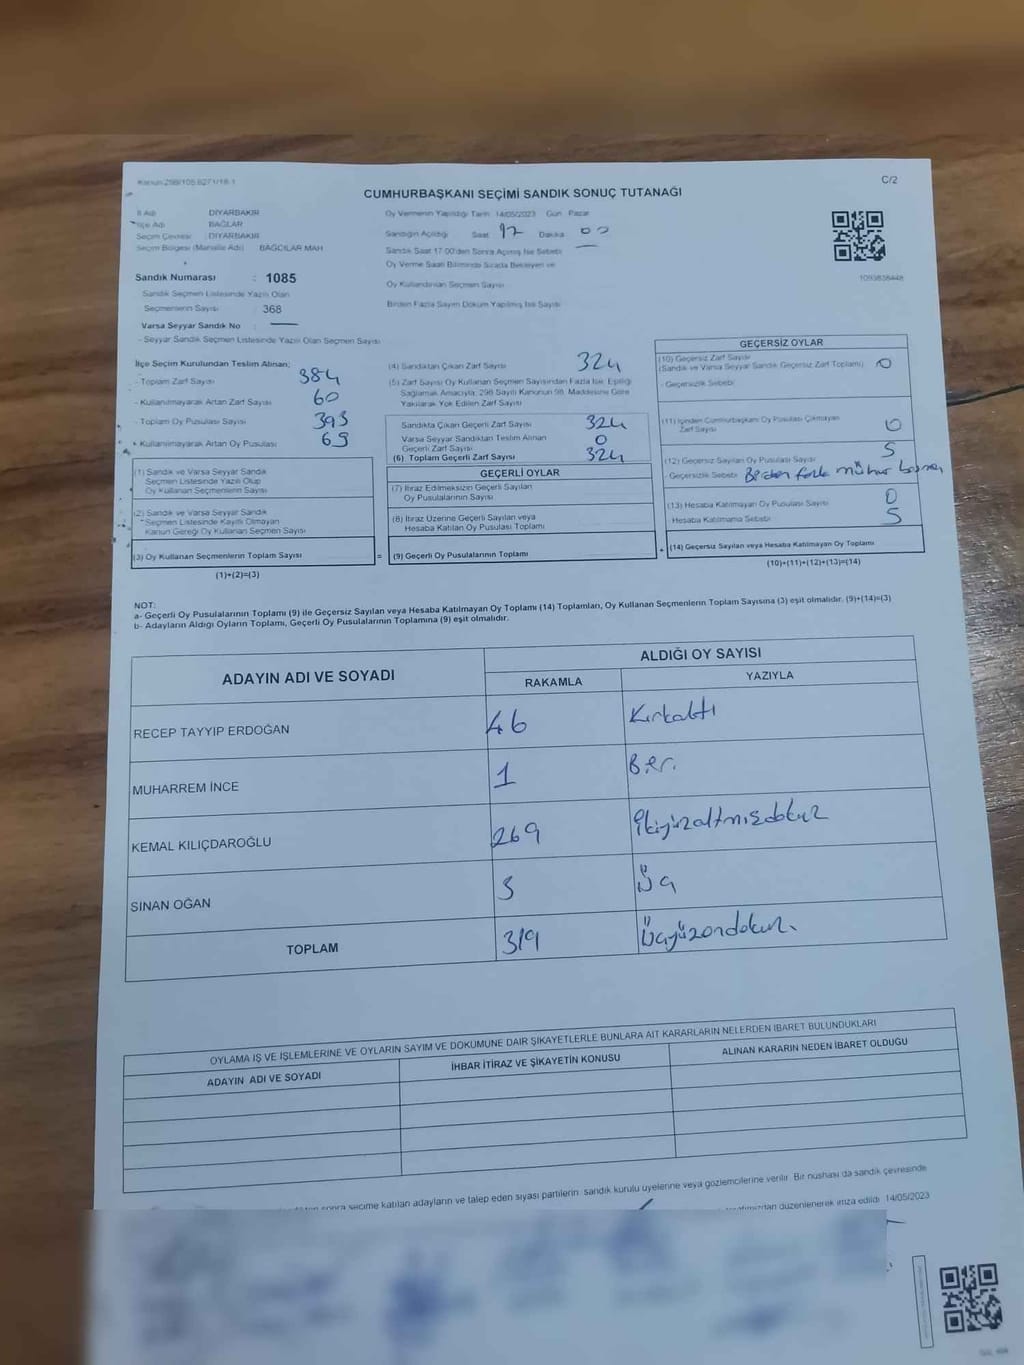 Kanun 298/105,6271/18-1
C/2
CUMHURBAŞKANI SEÇİMİ SANDIK SONUÇ TUTANAĞI
İl Adı DİYARBAKIR
İlçe Adı BAĞLAR
Seçim Çevresi : DİYARBAKIR
Seçim Bölgesi (Mahalle Adı) BAĞCILAR MAH
Sandık Numarası : 1085
Sandık Seçmen Listesinde Yazılı Olan
Seçmenlerin Sayısı : 368
Varsa Seyyar Sandık No : —
- Seyyar Sandık Seçmen Listesinde Yazılı Olan Seçmen Sayısı
Oy Vermenin Yapıldığı Tarih 14/05/2023 Gün Pazar
Sandığın Açıldığı Saat 17 Dakika 00
Sandık Saat 17:00'den Sonra Açılmış İse Sebebi —
Oy Verme Saati Bitiminde Sırada Bekleyen ve
Oy Kullandırılan Seçmen Sayısı
Birden Fazla Sayım Döküm Yapılmış İse Sayısı
1093838448
İlçe Seçim Kurulundan Teslim Alınan;
- Toplam Zarf Sayısı 384
- Kullanılmayarak Artan Zarf Sayısı 60
- Toplam Oy Pusulası Sayısı 393
- Kullanılmayarak Artan Oy Pusulası 69
(1) Sandık ve Varsa Seyyar Sandık
Seçmen Listesinde Yazılı Olup
Oy Kullanan Seçmenlerin Sayısı
(2) Sandık ve Varsa Seyyar Sandık
Seçmen Listesinde Kayıtlı Olmayan
Kanun Gereği Oy Kullanan Seçmen Sayısı
(3) Oy Kullanan Seçmenlerin Toplam Sayısı
(1)+(2)=(3)
=
(4) Sandıktan Çıkan Zarf Sayısı 324
(5) Zarf Sayısı Oy Kullanan Seçmen Sayısından Fazla İse, Eşitliği
Sağlamak Amacıyla, 298 Sayılı Kanunun 98. Maddesine Göre
Yakılarak Yok Edilen Zarf Sayısı
Sandıkta Çıkan Geçerli Zarf Sayısı 324
Varsa Seyyar Sandıktan Teslim Alınan
Geçerli Zarf Sayısı 0
(6) Toplam Geçerli Zarf Sayısı 324
GEÇERLİ OYLAR
(7) İtiraz Edilmeksizin Geçerli Sayılan
Oy Pusulalarının Sayısı
(8) İtiraz Üzerine Geçerli Sayılan veya
Hesaba Katılan Oy Pusulası Toplamı
(9) Geçerli Oy Pusulalarının Toplamı
+
GEÇERSİZ OYLAR
(10) Geçersiz Zarf Sayısı
(Sandık ve Varsa Seyyar Sandık Geçersiz Zarf Toplamı) 0
- Geçersizlik Sebebi
(11) İçinden Cumhurbaşkanı Oy Pusulası Çıkmayan
Zarf Sayısı 0
(12) Geçersiz Sayılan Oy Pusulası Sayısı 5
- Geçersizlik Sebebi Birden fazla mühür
(13) Hesaba Katılmayan Oy Pusulası Sayısı 0
Hesaba Katılmama Sebebi 5
(14) Geçersiz Sayılan veya Hesaba Katılmayan Oy Toplamı
(10)+(11)+(12)+(13)=(14)
NOT:
a- Geçerli Oy Pusulalarının Toplamı (9) ile Geçersiz Sayılan veya Hesaba Katılmayan Oy Toplamı (14) Toplamları, Oy Kullanan Seçmenlerin Toplam Sayısına (3) eşit olmalıdır. (9)+(14)=(3)
b- Adayların Aldığı Oyların Toplamı, Geçerli Oy Pusulalarının Toplamına (9) eşit olmalıdır.
ADAYIN ADI VE SOYADI
ALDIĞI OY SAYISI
RAKAMLA YAZIYLA
RECEP TAYYIP ERDOĞAN 46 Kırkaltı
MUHARREM İNCE 1 Bir.
KEMAL KILIÇDAROĞLU 269 ikiyüzaltmışdokuz
SİNAN OĞAN 3 Üç
TOPLAM 319 Üçyüzondokuz.
OYLAMA İŞ VE İŞLEMLERİNE VE OYLARIN SAYIM VE DÖKÜMÜNE DAİR ŞİKAYETLERLE BUNLARA AİT KARARLARIN NELERDEN İBARET BULUNDUKLARI
ADAYIN ADI VE SOYADI İHBAR İTİRAZ VE ŞİKAYETİN KONUSU ALINAN KARARIN NEDEN İBARET OLDUĞU
sonra seçime katılan adayların ve talep eden siyasi partilerin sandık kurulu üyelerine veya gözlemcilerine verilir. Bir nüshası da sandık çevresinde
düzenlenerek imza edildi. 14/05/2023